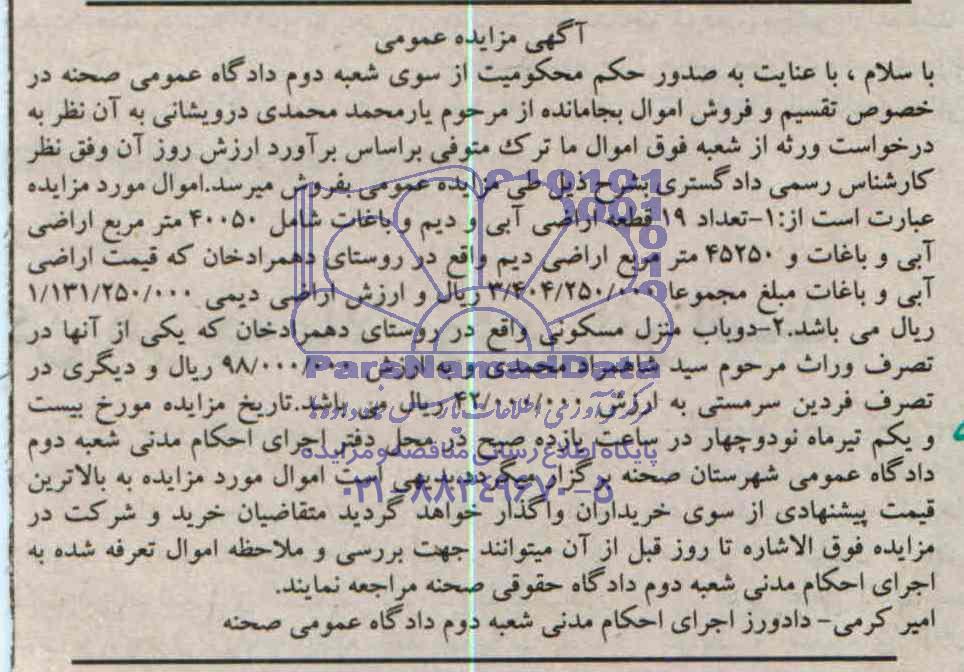 آگهی مزایده عمومی
با سلام ، با عنایت به صدور حکم محکومیت از سوی شعبه دوم دادگاه عمومی صحنه در
خصوص تقسیم و فروش اموال بجامانده از مرحوم یارمحمد محمدی درویشانی به آن نظر به
درخواست ورثه از شعبه فوق اموال ما ترک متوفی براساس برآورد ارزش روز آن وفق نظر
کارشناس رسمی دادگستری بشرح ذیل طی مزایده عمومی بفروش میرسد.اموال مورد مزایده
عبارت است از:۱-تعداد ۱۹ قطعه اراضی آبی و دیم و باغات شامل ۴۰۰۵۰ متر مربع اراضی
آبی و باغات و ۴۵۲۵۰ متر مربع اراضی دیم واقع در روستای دهمرادخان که قیمت اراضی
آبی و باغات مبلغ مجموعا ۳/۴۰۴/۲۵۰/۰۰۰ ریال و ارزش اراضی دیمی ۱/۱۳۱/۲۵۰/۰۰۰
ریال می باشد.۲-دوباب منزل مسکونی واقع در روستای دهمرادخان که یکی از آنها در
تصرف وراث مرحوم سید شاهمراد محمدی و به ارزش ۹۸/۰۰۰/۰۰۰ ریال و دیگری در
تصرف فردین سرمستی به ارزش ۴۲/۰۰۰/۰۰۰ ریال می باشد.تاریخ مزایده مورخ بیست
و یکم تیرماه نودوچهار در ساعت یازده صبح در محل دفتر اجرای احکام مدنی شعبه دوم
دادگاه عمومی شهرستان صحنه برگزار میگردد.بدیهی است اموال مورد مزایده به بالاترین
قیمت پیشنهادی از سوی خریداران واگذار خواهد گردید متقاضیان خرید و شرکت در
مزایده فوق الاشاره تا روز قبل از آن میتوانند جهت بررسی و ملاحظه اموال تعرفه شده به
اجرای احکام مدنی شعبه دوم دادگاه حقوقی صحنه مراجعه نمایند.
امیر کرمی- دادورز اجرای احکام مدنی شعبه دوم دادگاه عمومی صحنه
ParsNamadData
پایگاه اطلاع رسانی مناقصه و مزایده
۰۲۱-۸۸۳۴۹۶۷۰-۵